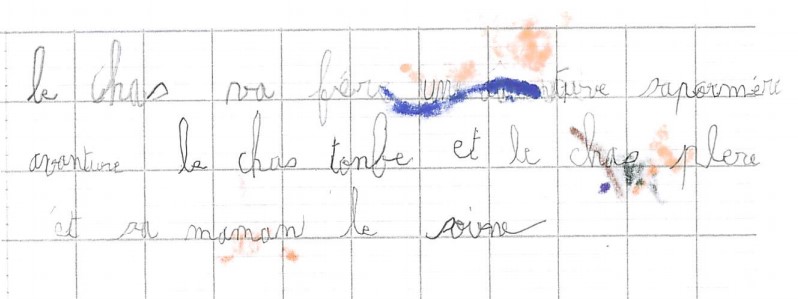 le chas va fére une aventure
avanture le chas tonbe et le chas plere
et sa maman le soivne